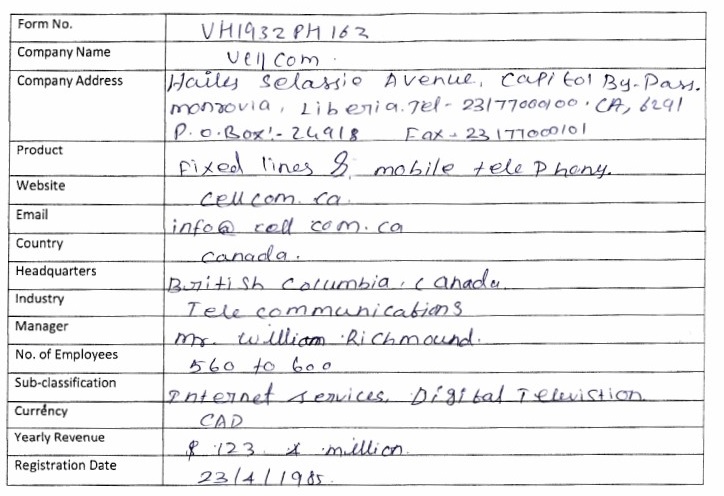 Form No. VH1932PH162
Company Name Vellcom.
Company Address Hailey Selassie Avenue, Capitol By-Pass.
monrovia, Liberia. Tel - 23177000100. CA, 6291
P.O.Box:- 24918 Fax - 23177000101
Product Fixed lines & mobile telephony.
Website cellcom.ca.
Email info@cellcom.ca
Country Canada.
Headquarters British Columbia, Canada.
Industry Telecommunications
Manager Mr. William Richmound.
No. of Employees 560 to 600
Sub-classification Internet services, Digital Televistion
Currency CAD
Yearly Revenue $ 123 million.
Registration Date 23/4/1985.